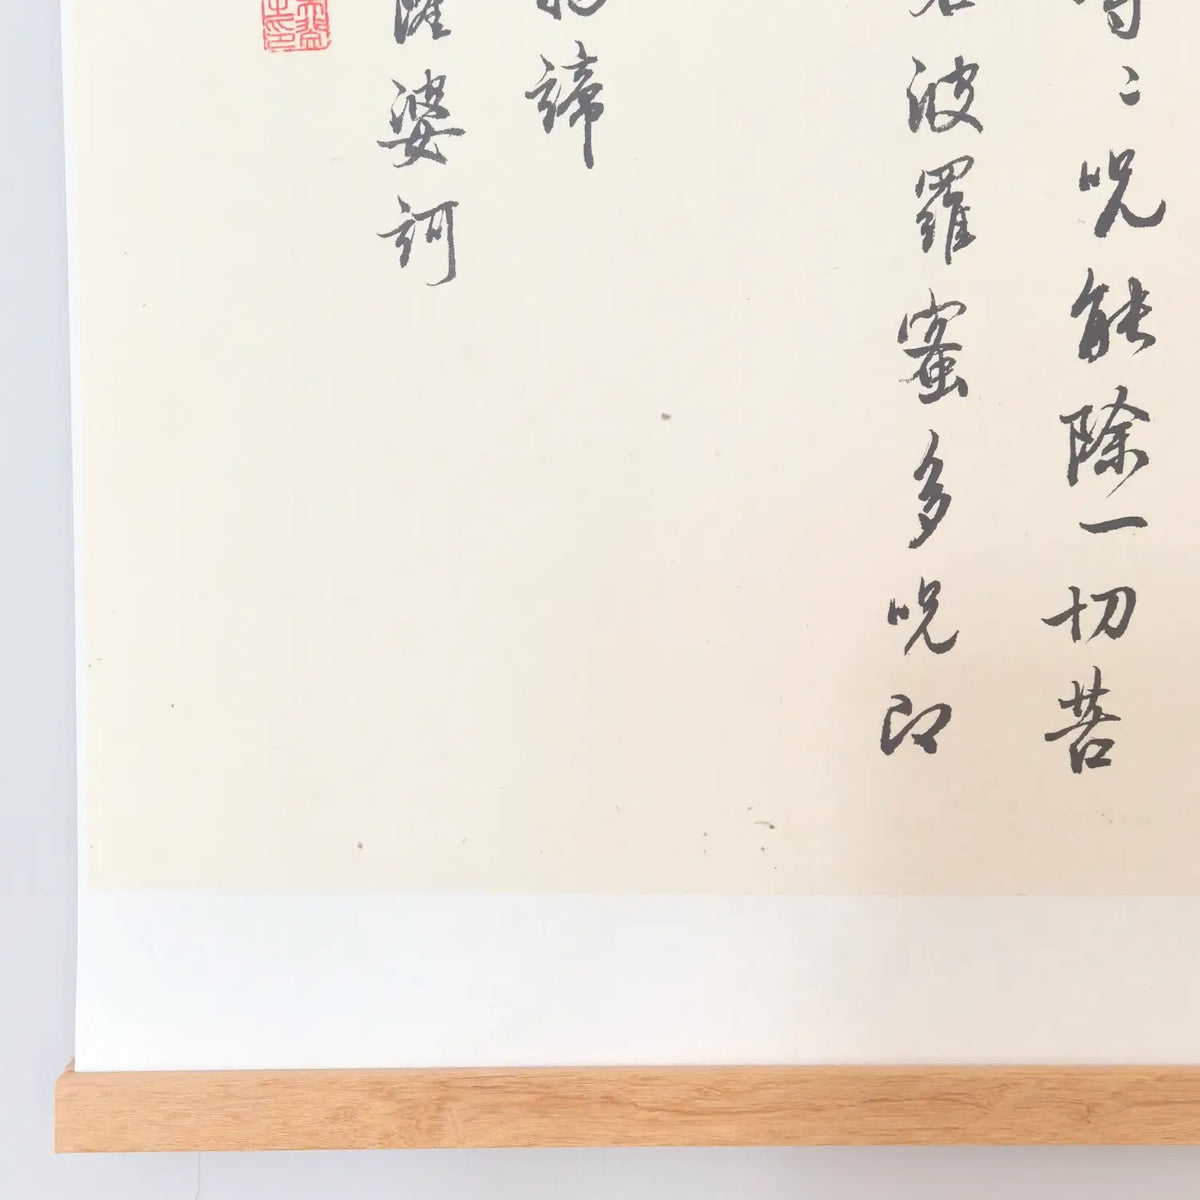 〻咒能除一切苦
波羅蜜多咒即
諦
婆訶